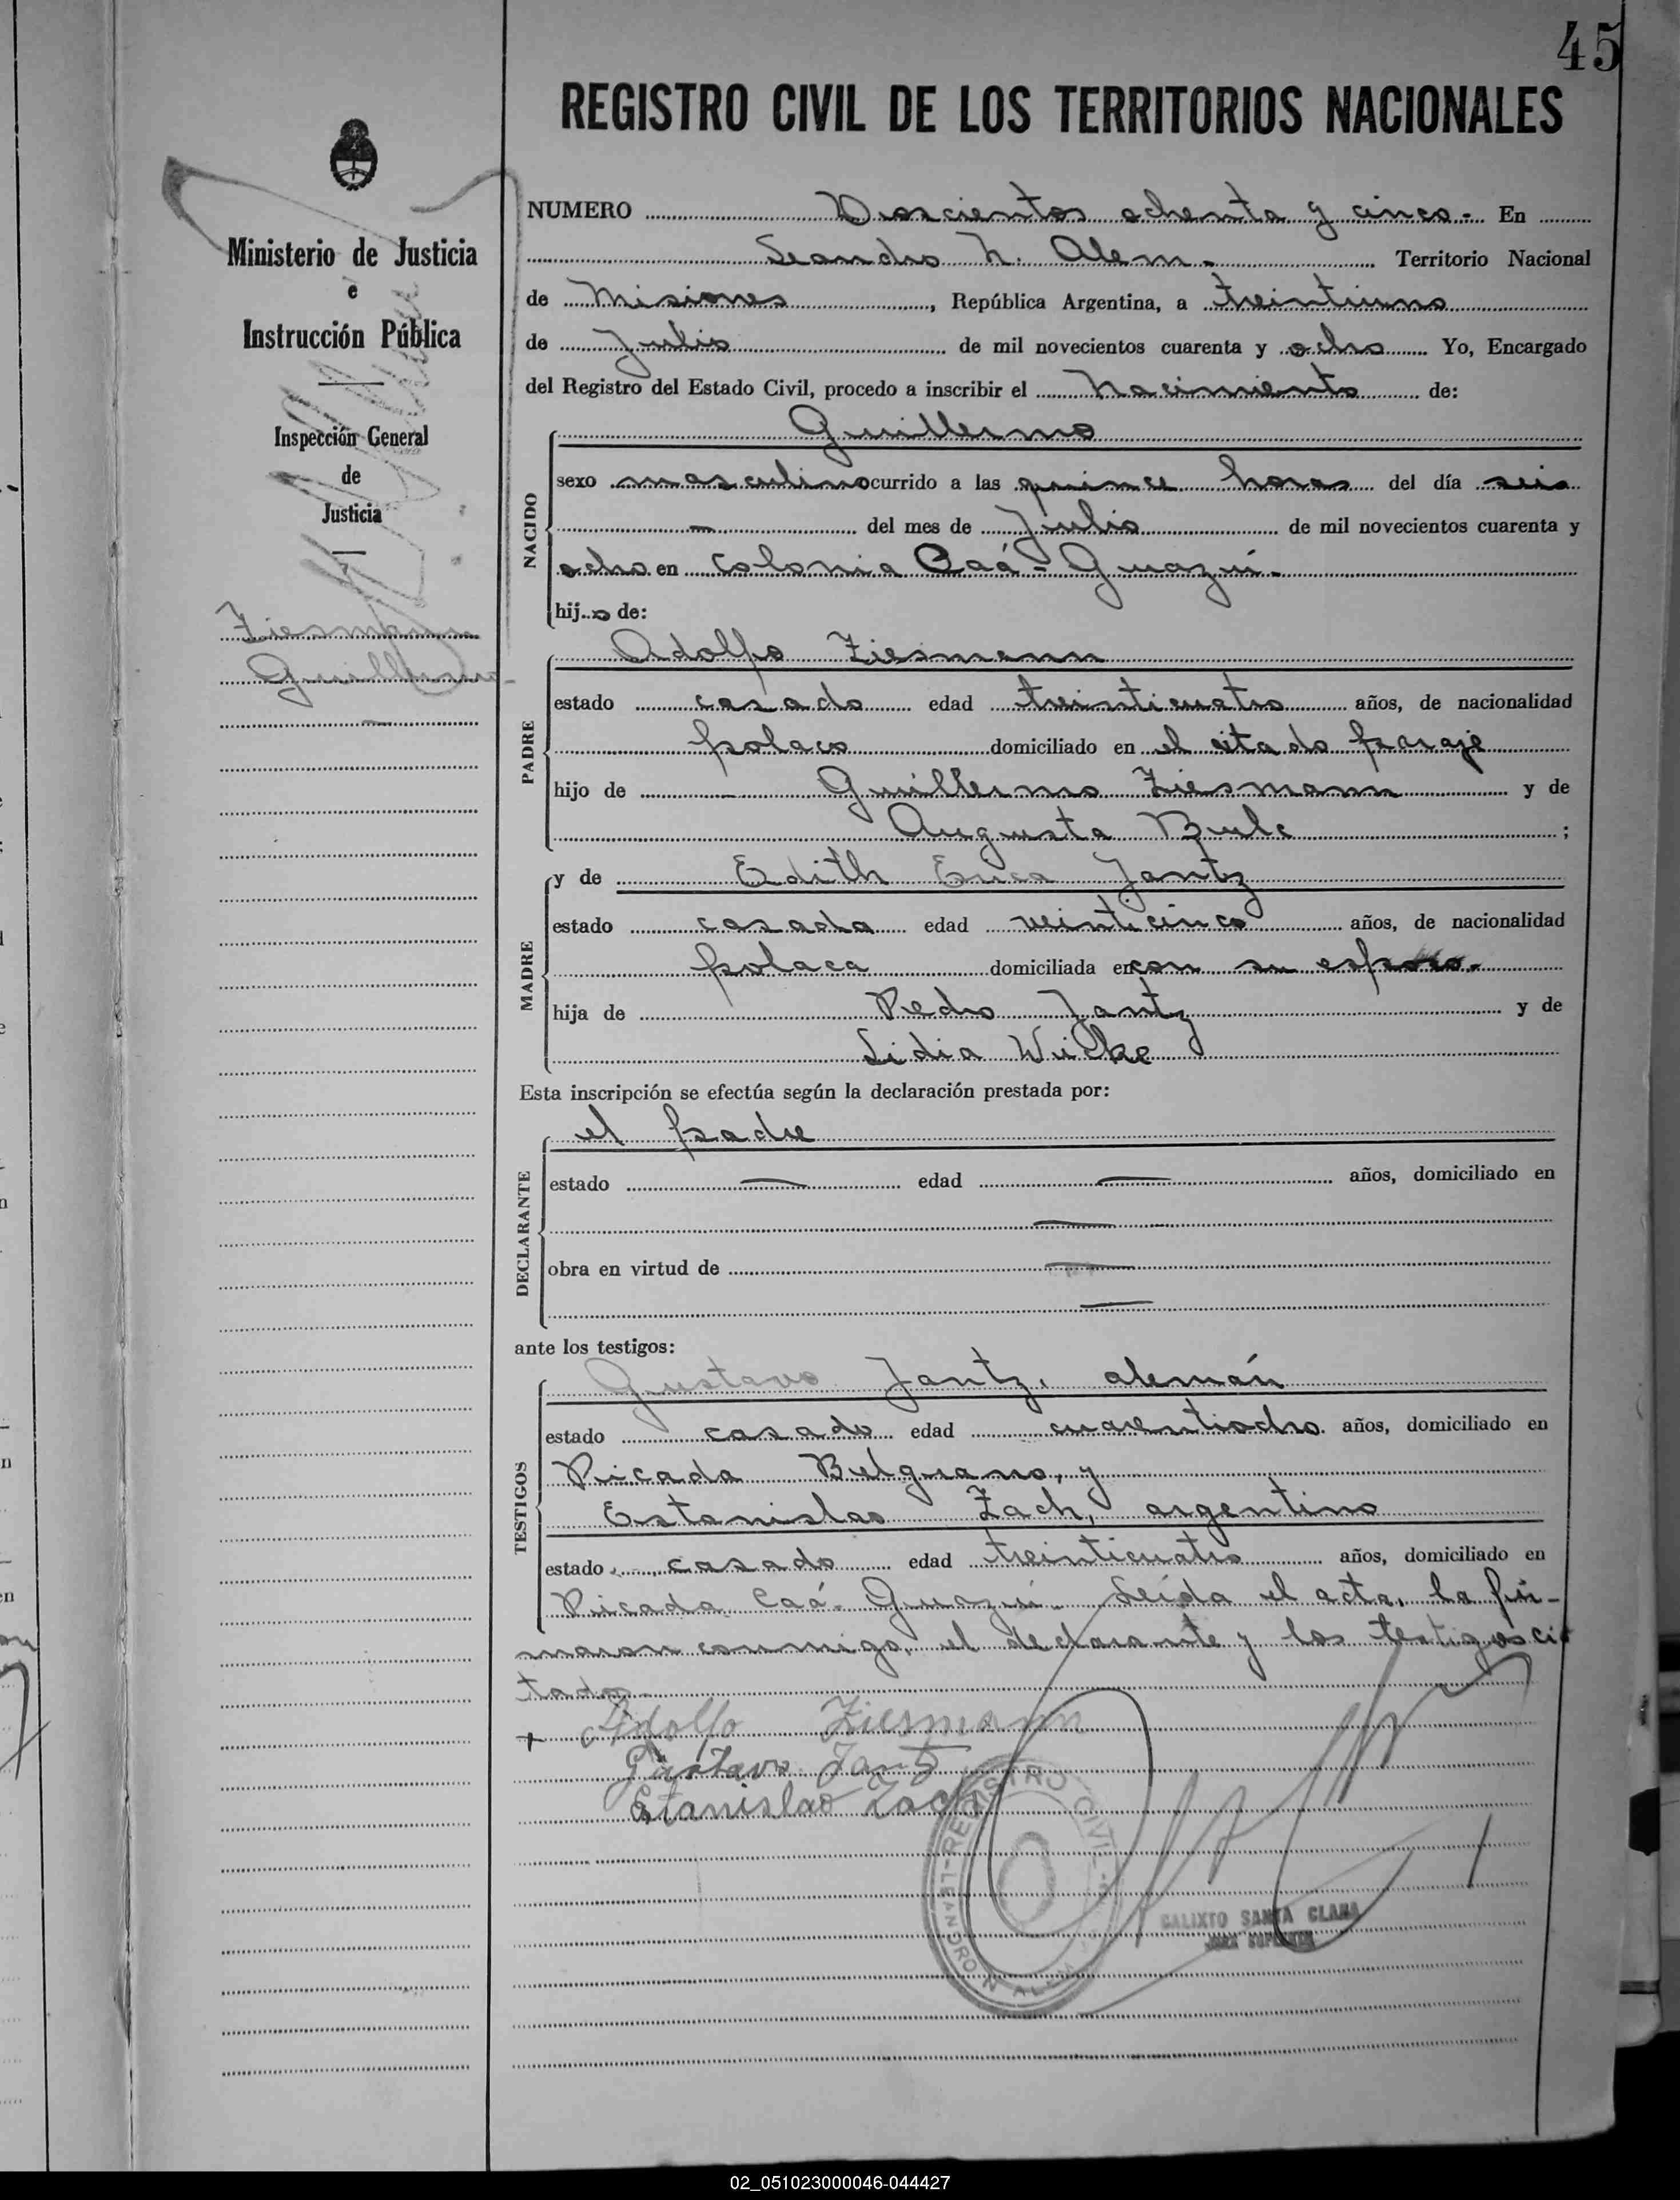 45
REGISTRO CIVIL DE LOS TERRITORIOS NACIONALES
Ministerio de Justicia
e
Instrucción Pública
Inspección General
de
Justicia
Ziesmann
Guillermo
NUMERO Doscientos ochenta y cinco.- En
Leandro N. Alem.- Territorio Nacional
de Misiones, República Argentina, a treintiuno
de Julio de mil novecientos cuarenta y ocho Yo, Encargado
del Registro del Estado Civil, procedo a inscribir el nacimiento de:
NACIDO
Guillermo
sexo masculino ocurrido a las quince horas del día seis
— del mes de Julio de mil novecientos cuarenta y
ocho en Colonia Caá-Guazú.-
hijo de:
PADRE
Adolfo Ziesmann
estado casado edad treinticuatro años, de nacionalidad
polaco domiciliado en el citado paraje
hijo de Guillermo Ziesmann y de
Augusta ;
MADRE
y de Edith Erica Jantz
estado casada edad veinticinco años, de nacionalidad
polaca domiciliada en con su esposo.
hija de Pedro Jantz y de
Lidia Wilke
Esta inscripción se efectúa según la declaración prestada por:
DECLARANTE
el padre
estado — edad — años, domiciliado en
—
obra en virtud de —
—
ante los testigos:
TESTIGOS
Gustavo Jantz, alemán
estado casado edad cuarentiocho años, domiciliado en
Picada Belgrano, y
Estanislao Zach, argentino
estado casado edad treinticuatro años, domiciliado en
Picada Caá-Guazú.- Leída el acta, la fir-
maron conmigo, el declarante y los testigos ci-
tados.-
+ Adolfo Ziesmann
Gustavo Jantz
Estanislao Zach
REGISTRO CIVIL - LEANDRO N. ALEM
CALIXTO SANTA CLARA
JUEZ SUPLENTE
02_051023000046-044427